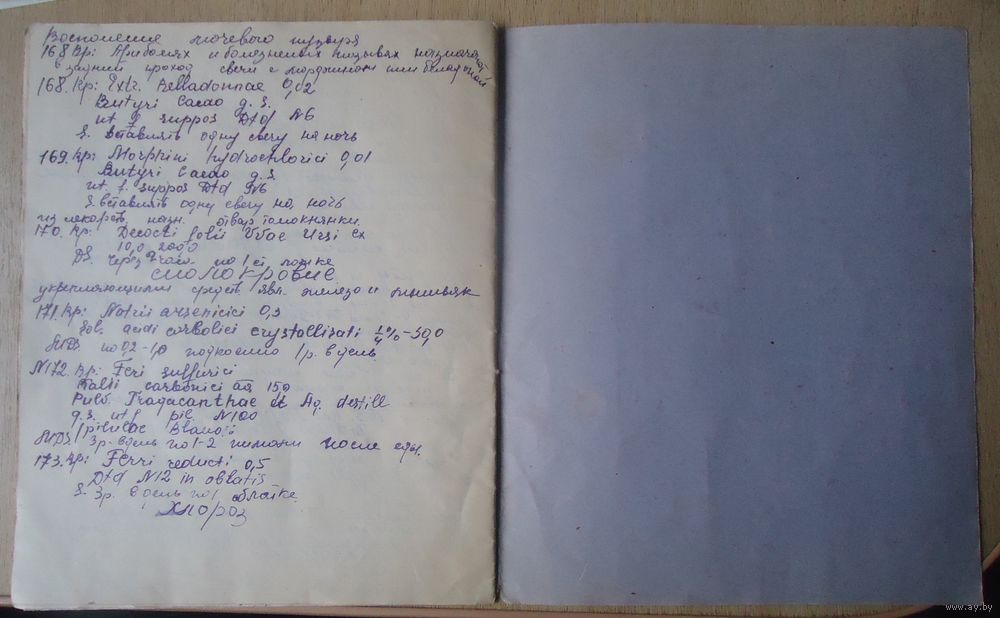 Восполение мочевого пузыря
168 Rp: При болях и болезненых позывах назначают
в задний проход свечи с морфином или беладоной
168. Rp: Extr. Belladonnae 0,02
Butyri Cacao q. s.
ut f suppos Dtd N6
S. вставлять одну свечу на ночь
169. Rp: Morphini hydrochlorici 0,01
Butyri Cacao q. s.
ut f. suppos Dtd N6
S вставлять одну свечу на ночь
из лекарств. назн. отвар толокнянки
170. Rp: Decocti folii Uvae Ursi ex
10,0 200,0
DS. через по 1 ст ложке
малокровие
укрепляющими средств явл. железо и мышьяк
171. Rp: Natrii arsenicici 0,3
Sol. acidi carbolici crystallisati ¼%-30,0
MDS. по 0,2-1,0 подкожно 1 р. в день
N172. Rp: Feri sulfurici
Kalii carbonici aa 15,0
Pulv. Tragacanthae et Aq. destill
q. s. ut f pil. N100
pilulae Blaudii
MDS 3р. в день по 1-2 пилюли после еды.
173. Rp: Ferri reducti 0,5
Dtd N12 in oblatis
S. 3р. в день по 1 облатке
Хлороз
www.ay.by